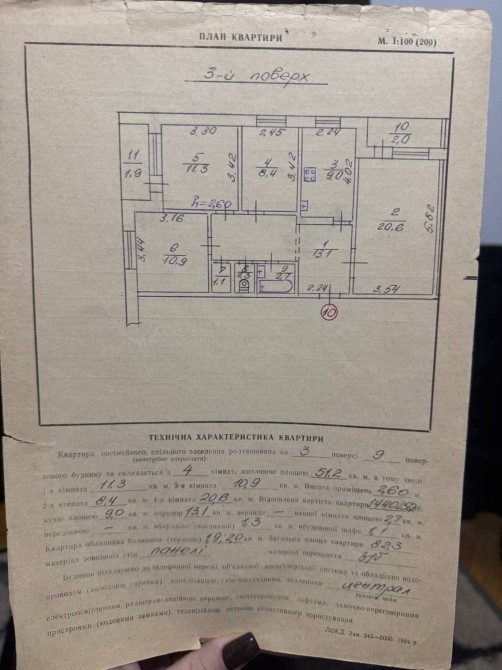 ПЛАН КВАРТИРИ
М. 1:100 (200)
3-й поверх
3,30 2,45 2,24 10 2,0
11 1,9
5 11.3 3,42
4 8,4 3,42
3 9,0 4,02
2 20.6 5,82
h=2,60
3,16
3,44 6 10,9
1 13.1
7 1,1
9 2,7
2,24 3,54
10
ТЕХНІЧНА ХАРАКТЕРИСТИКА КВАРТИРИ
Квартира, посімейного, спільного заселення розташована на 3 поверсі 9 повер-
(непотрібне закреслити)
хового будинку та складається з 4 кімнат, житловою площею 51,2 кв. м, в тому числі
1-а кімната 11.3 кв. м, 3-я кімната 10,9 кв. м. Висота приміщень 2,60 м.
2-а кімната 8,4 кв. м, 4-а кімната 20,6 кв. м. Відновлена вартість квартири
кухні площею 9,0 кв. м, коридор 13.1 кв. м, веранди — ванної кімнати площею 2,7 кв. м
передпокою — кв. м, вбиральні 1,3 кв. м, вбудовані шафи 1,1 кв. м
Квартира обладнана балконом (терасою) кв. м. Загальна площа квартири 82,3
матеріал зовнішніх стін панелі матеріал перекриття з/б
Будинок підключено до та обладнано водо-
проводом (холодним, гарячим), каналізацією, опаленням централ
електроосвітленням, радіотрансляційною мережею, сміттєпроводом, ліфтами, замочно-переговорними
пристроями (кодовими замками), телевізійною антеною колективного користування.